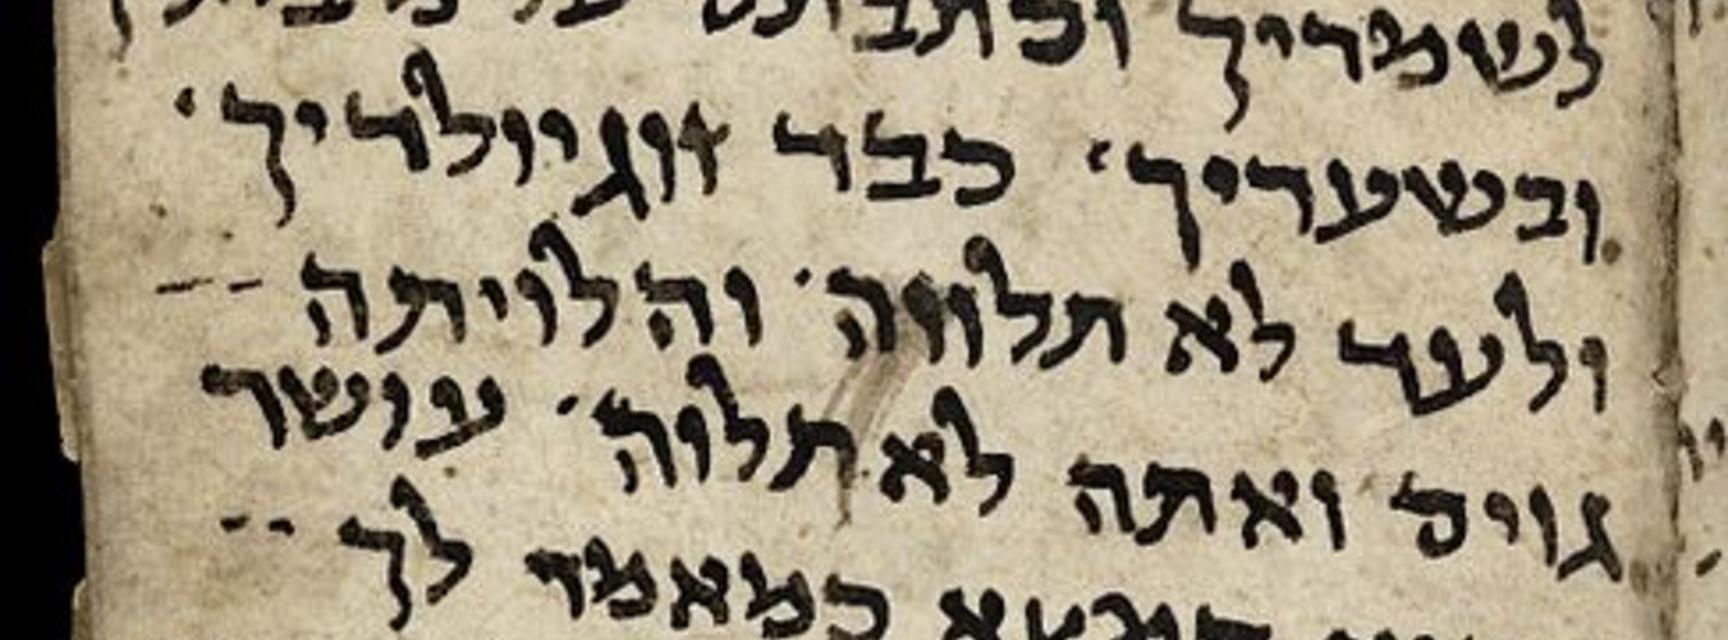 לשמריך וכתבתם על
ובשעריך· כבד זוג יולדיך·
ולעד לא תלווה· והלויתה --
גוים ואתה לא תלוה· עושר
כמאמר לך --